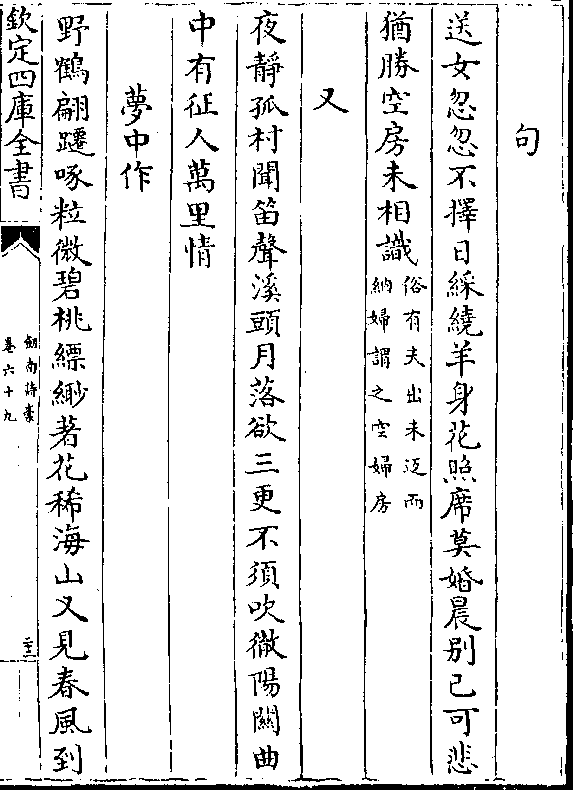 句
送女忽忽不擇日綵繞羊身花照席莫婚晨别已可悲
猶勝空房未相識俗有夫出未返而
納婦謂之空婦房
又
夜靜孤村聞笛聲溪頭月落欲三更不須吹徹陽關曲
中有征人萬里情
夢中作
野鶴翩躚啄粒微碧桃縹緲著花稀海山又見春風到
欽定四庫全書
劔南詩槀
卷六十九
二十三